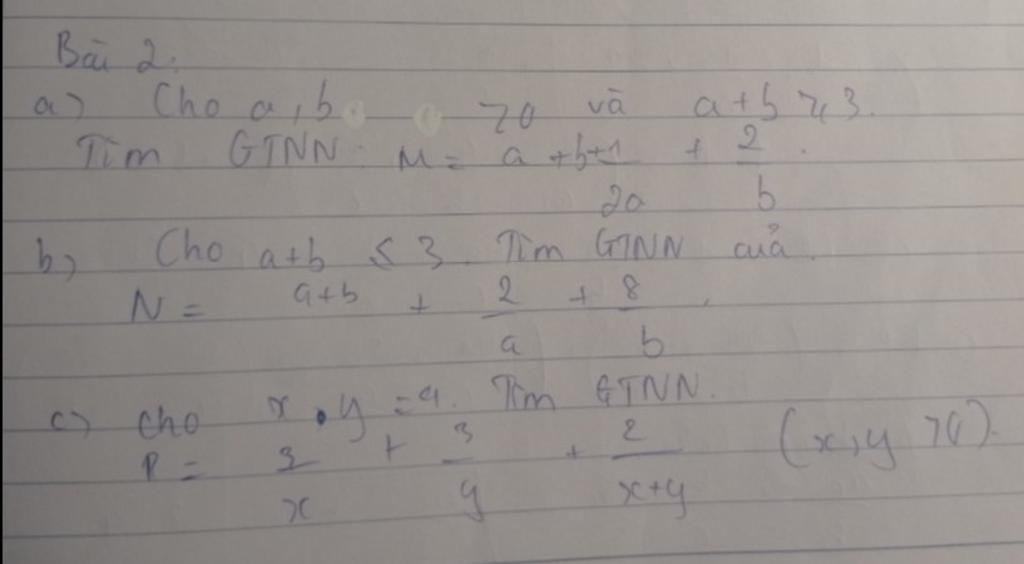 Bài 2:
a) Cho a, b > 0 và a+b ≥ 3.
Tìm GTNN: M = a + b + 1/2a + 2/b.
b) Cho a+b ≤ 3. Tìm GTNN của.
N = a+b + 2/a + 8/b.
c) Cho x . y = 4. Tìm GTNN.
P = 3/x + 3/y + 2/x+y (x, y > 0).